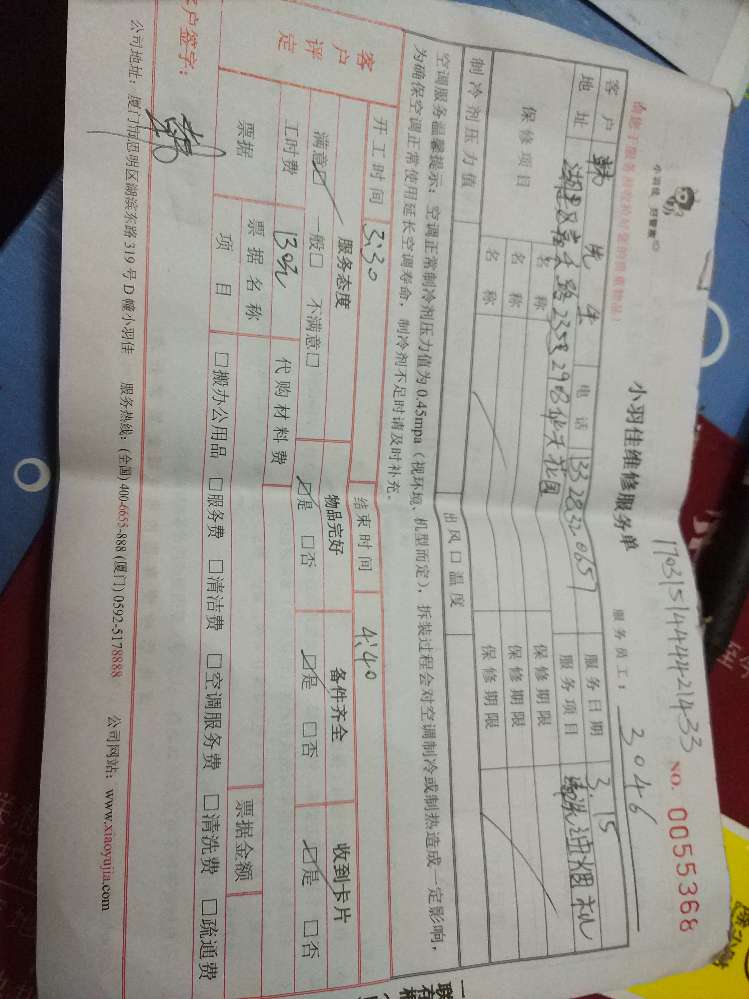 小羽佳 好管家
请您于服务前收拾好您的贵重物品!
170315144442-21433
小羽佳维修服务单
服务员工: 3046
NO. 0055368
客户 韩先生 电话 13328320657 服务日期 3.15
地址 湖里区 路 花园 服务项目 清洗油烟机
保修项目 名称 保修期限
名称 保修期限
名称 保修期限
制冷剂压力值 出风口温度
空调服务温馨提示:空调正常制冷剂压力值为0.45mpa(视环境、机型而定),拆装过程会对空调制冷或制热造成一定影响,
为确保空调正常使用延长空调寿命,制冷剂不足时请及时补充。
开工时间 3:30 结束时间 4:40
客户评定
服务态度 物品完好 备件齐全 收到卡片
满意☑ 一般□ 不满意□ ☑是 □否 ☑是 □否 ☑是 □否
工时费 130元 代购材料费
票据 票据名称 票据金额
项目 □搬办公用品 □服务费 □清洁费 □空调服务费 □清洗费 □疏通费
客户签字: 韩
公司地址:厦门市思明区湖滨东路319号D幢小羽佳 服务热线:(全国) 400-6655-888 (厦门) 0592-5178888 公司网站:www.xiaoyujia.com